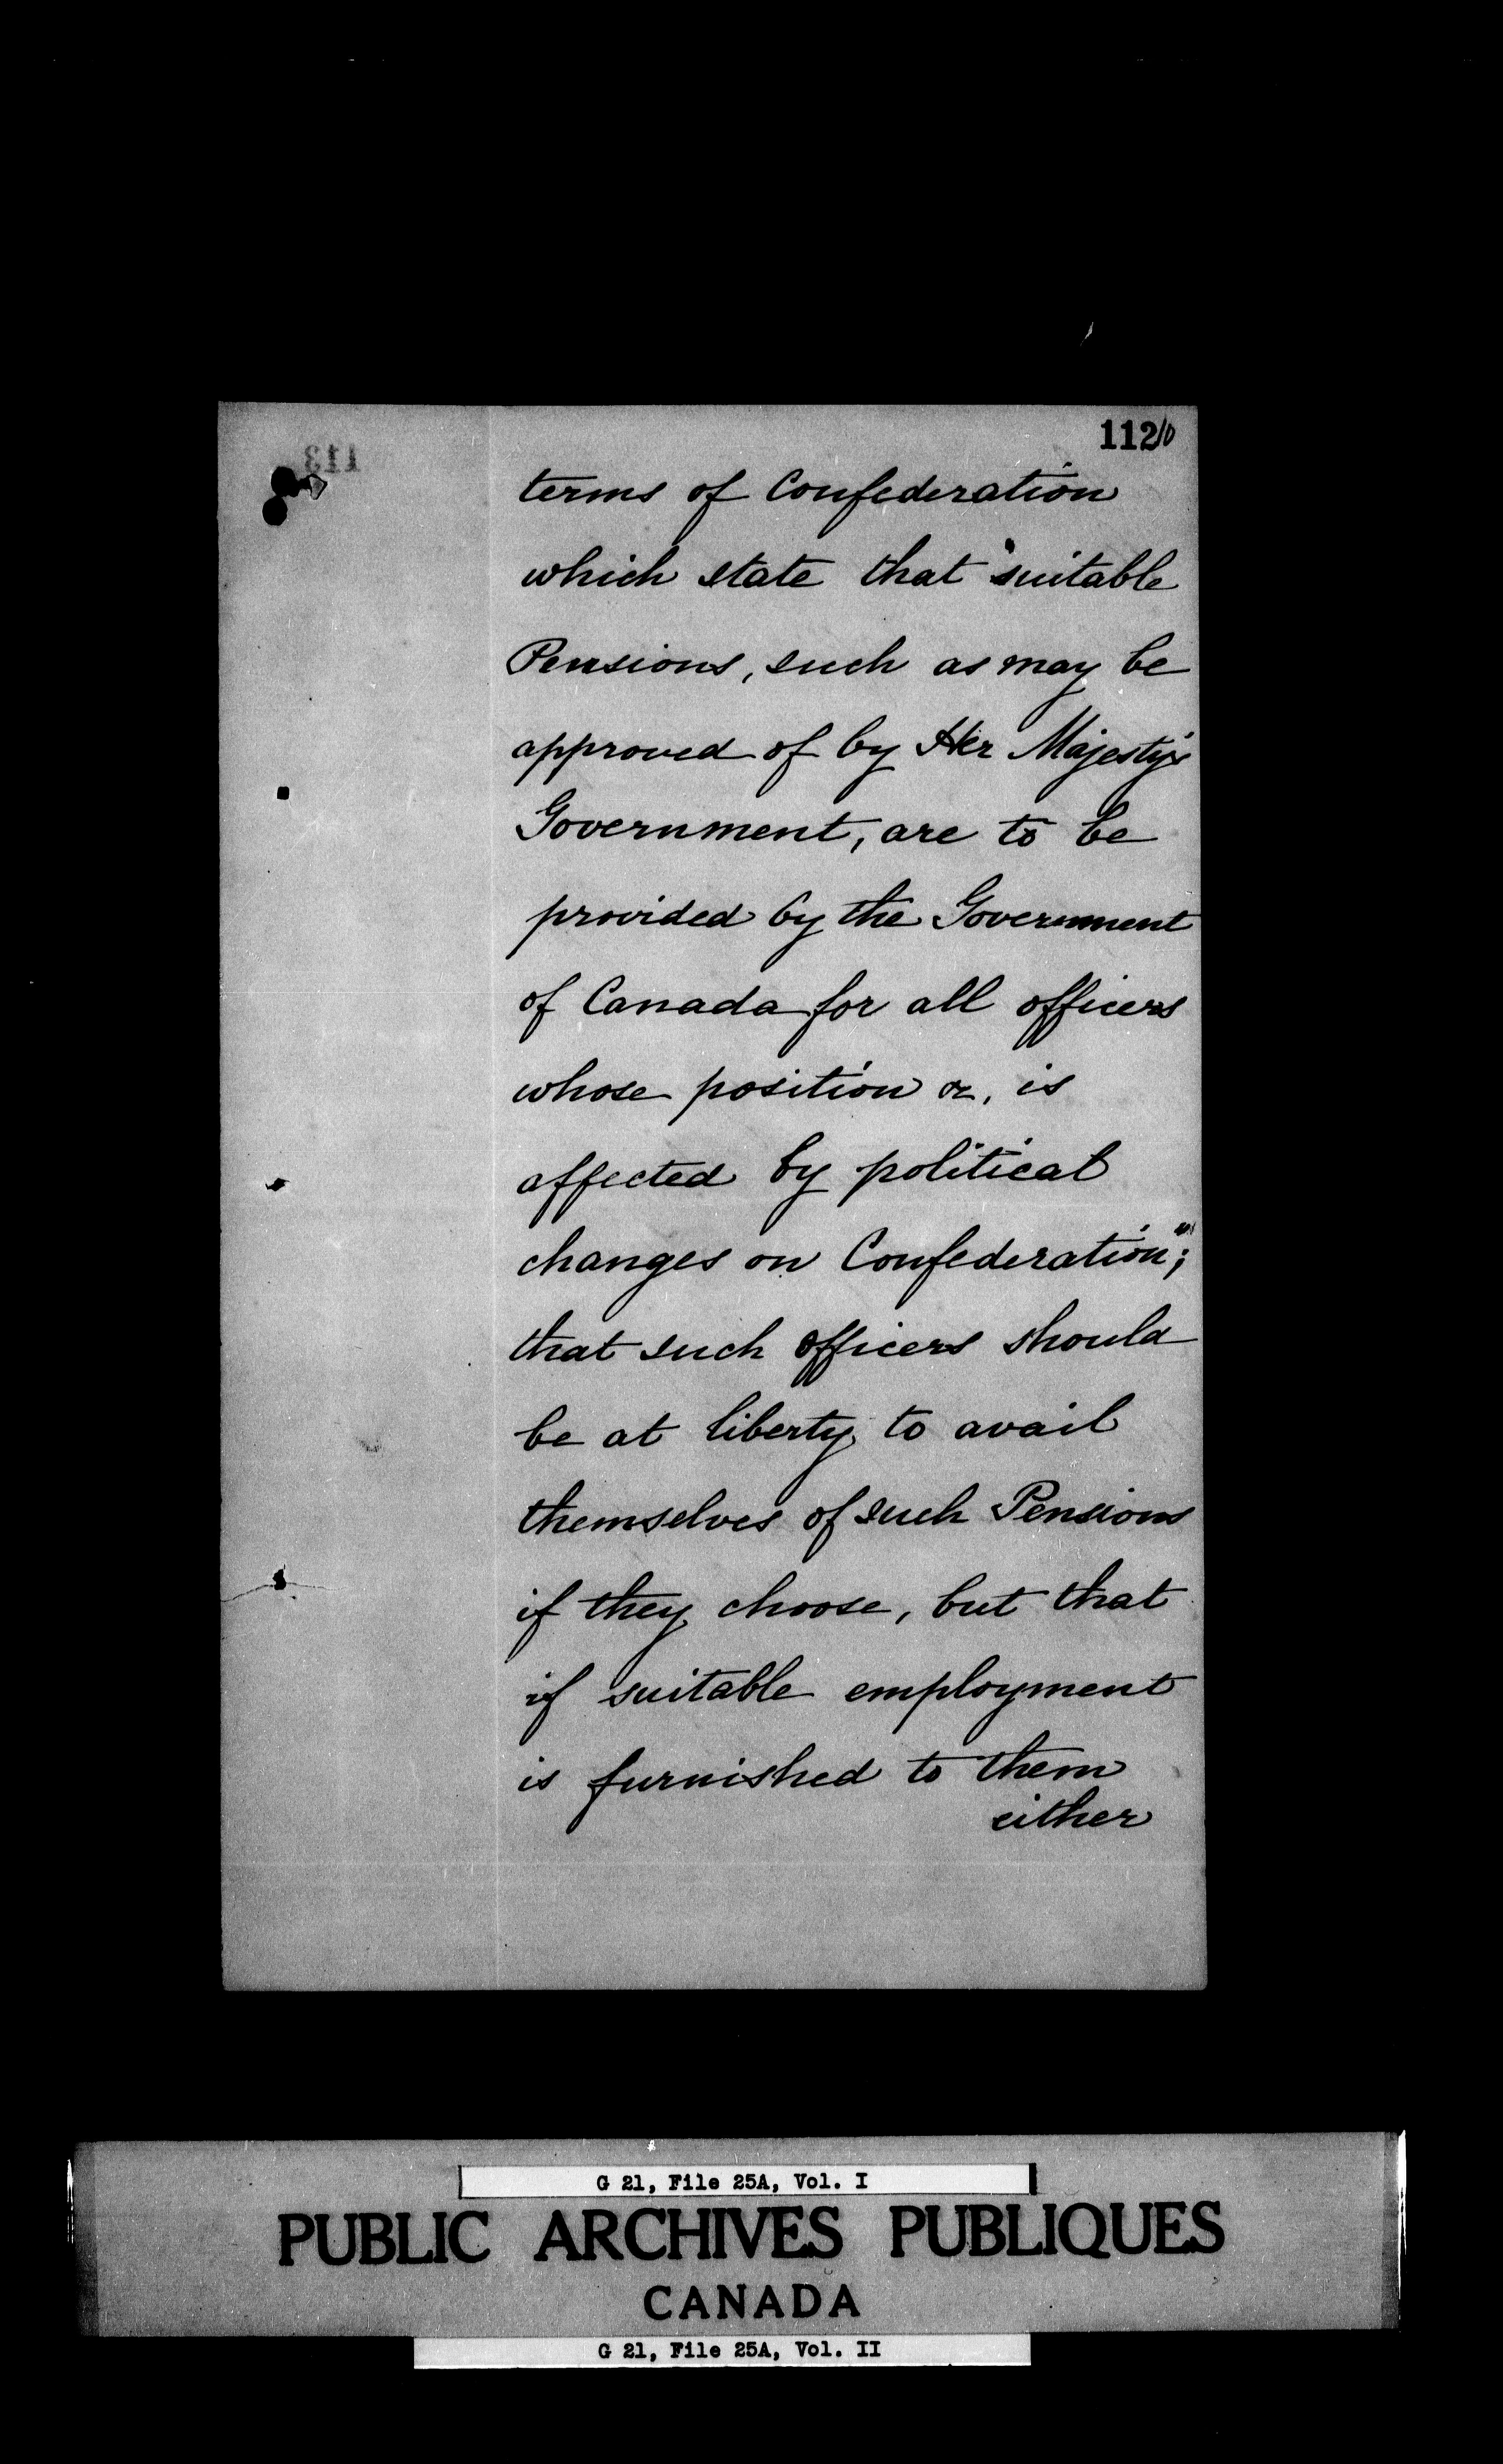 112/0
113
terms of Confederation
which state that "suitable
Pensions, such as may be
approved of by Her Majesty's
Government, are to be
provided by the Government
of Canada for all officers
whose position &c, is
affected by political
changes on Confederation";
that such officers should
be at liberty to avail
themselves of such Pensions
if they choose, but that
if suitable employment
is furnished to them
either
G 21, File 25A, Vol. I
PUBLIC ARCHIVES PUBLIQUES
CANADA
G 21, File 25A, Vol. II